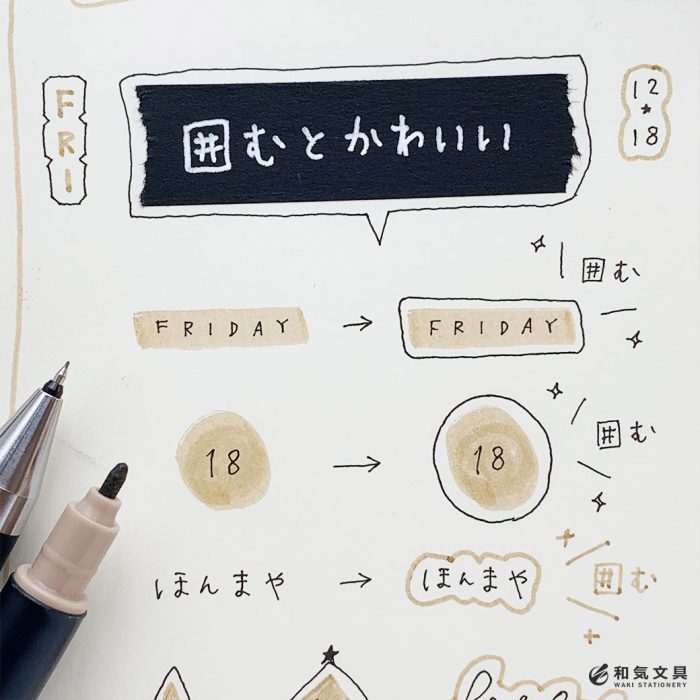 FRI
囲むとかわいい
12
18
囲む
FRIDAY → FRIDAY
囲む
18 → 18
ほんまや → ほんまや
囲む
和気文具
WAKI STATIONERY